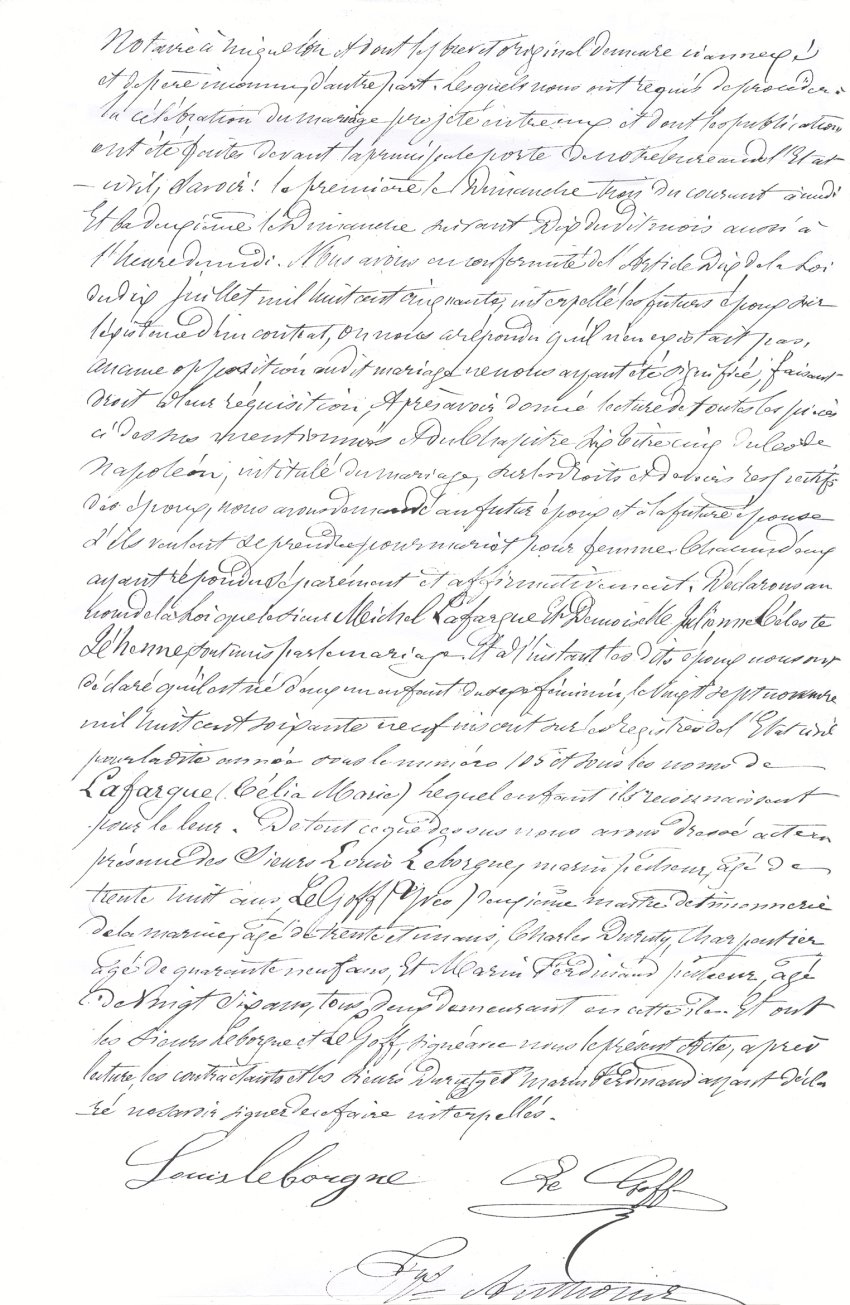 Notaire à Miquelon et dont le brevet original demeure ci annexé
et de père inconnu, d'autre part. Lesquels nous ont requis de procéder à
la célébration du mariage projeté entre eux et dont les publications
ont été faites devant la principale porte de notre bureau de l'Etat
-civil, Savoir: la première le Dimanche trois du courant à midi
Et la deuxième le Dimanche suivant Dix dudit mois aussi à
l'heure de midi. Nous avons en conformité de l'Article Dix de la Loi
du dix Juillet mil huit cent cinquante, interpellé les futurs époux sur
l'existence d'un contrat, on nous a répondu qu'il n'en existait pas,
aucune opposition audit mariage ne nous ayant été signifiée, faisant
droit à leur réquisition, Après avoir donné lecture de toutes les pièces
ci dessus mentionnées et du Chapitre Six titre cinq du Code
Napoléon, intitulé du mariage, sur les droits et devoirs respectifs
des époux, nous avons demandé au futur époux et à la future épouse
s'ils veulent se prendre pour mari et pour femme. Chacun d'eux
ayant répondu séparément et affirmativement. Déclarons au
nom de la Loi que le sieur Michel Lafargue Et Demoiselle Julienne Céleste
Jéhenne sont unis par le mariage. Et à l'instant les dits époux nous ont
déclaré qu'il est né d'eux un enfant du sexe féminin, le vingt sept novembre
mil huit cent soixante neuf inscrit sur les registres de l'Etat civil
pour la dite année sous le numéro 105 et sous les noms de
Lafargue (Célia Marie) Lequel enfant ils reconnaissent
pour le leur. De tout ce que dessus nous avons dressé acte en
présence des Sieurs Louis Leborgne, marin pêcheur, âgé de
trente huit ans, Le Goff (Yves) deuxième maître de timonnerie
de la marine, âgé de trente et un ans, Charles Duruty, Charpentier
âgé de quarante neuf ans, Et Marin Ferdinand pêcheur, âgé
de Vingt Six ans, tous deux demeurant en cette île. Et ont
les Sieurs Leborgne et Le Goff, signé avec nous le présent Acte, après
lecture, les contractants et les Sieurs Duruty et Marin Ferdinand ayant décla
ré ne savoir signer de ce faire interpellés.
Louis leborgne
Le Goff